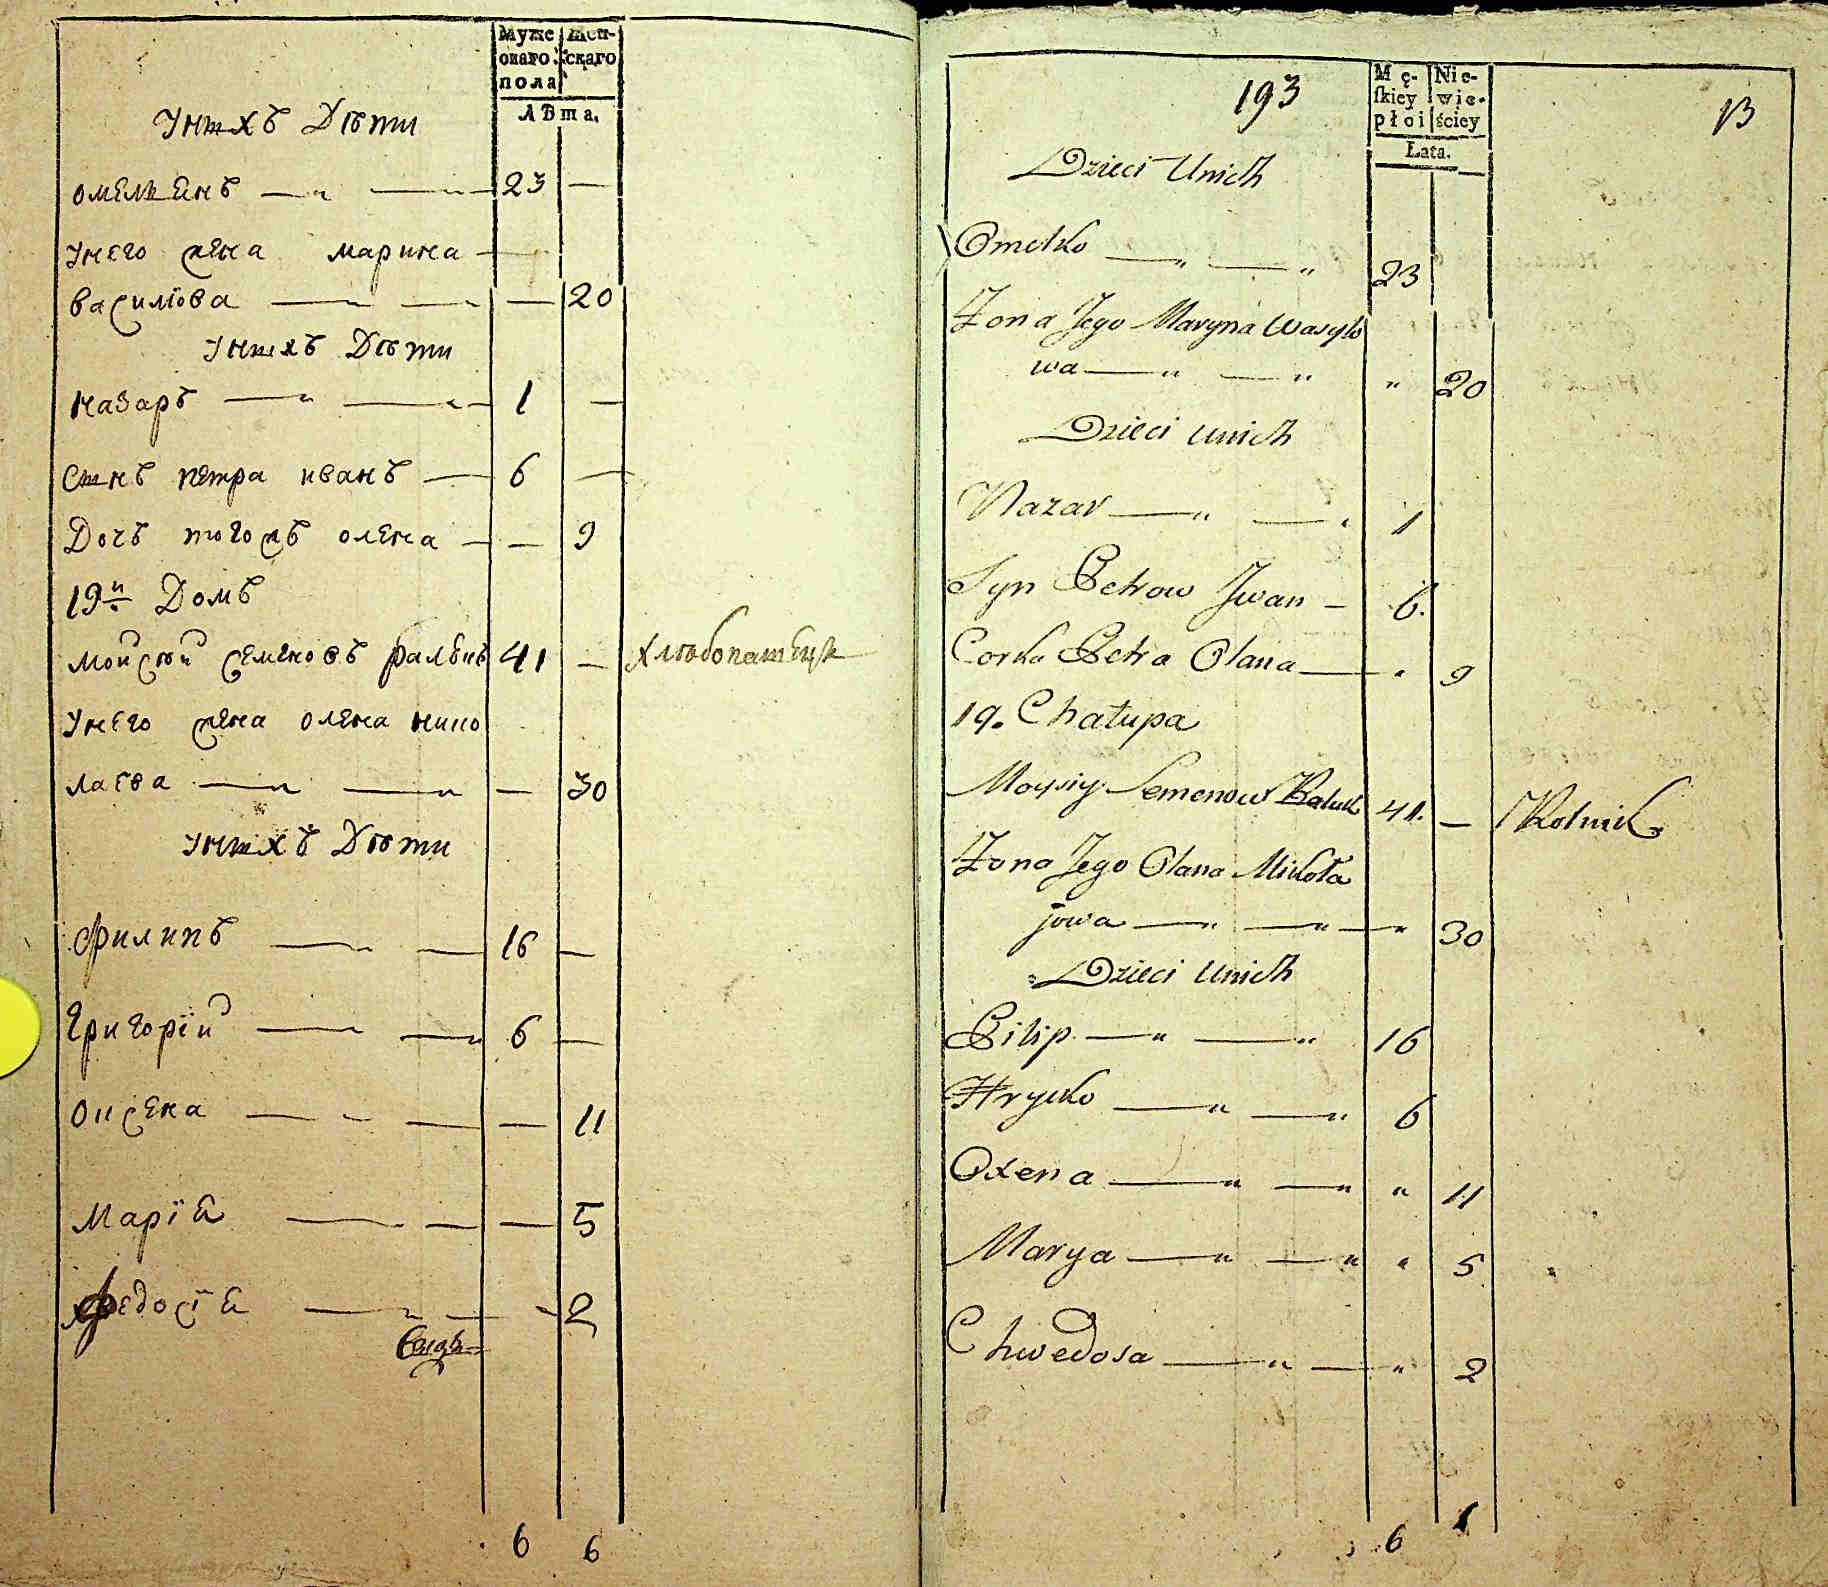 Муже
скаго
пола
Жен-
скаго
Лѣта.
Унихъ Дѣти
омелянъ 23 —
унего жена марина
василіова — 20
Унихъ Дѣти
назаръ 1 —
Сынъ петра иванъ 6 —
Дочъ тогожъ олена — 9
19й Домъ
мойсѣй семеновъ 41 — хлѣбопашецъ
унего жена олена нико
лаева — 30
унихъ Дѣти
филипъ 16 —
григорій 6 —
оксена — 11
марія — 5
федосія — 2
6 6
193
Mę-
skiey
płci
Nie-
wie-
ściey
Lata.
13
Dzieci Unich
Omelko 23
Żona Jego Maryna Wasylo
wa " 20
Dzieci Unich
Nazar 1
Syn Petrow Jwan — 6.
Corka Petra Olana " 9
19. Chałupa
Moysiy Semenow 41. — Rolnik
Żona Jego Olana Mikoła
jowa " 30
Dzieci Unich
Pilip 16
Hrycko 6
Oxena " 11
Marya " 5
Chwedosa " 2
6